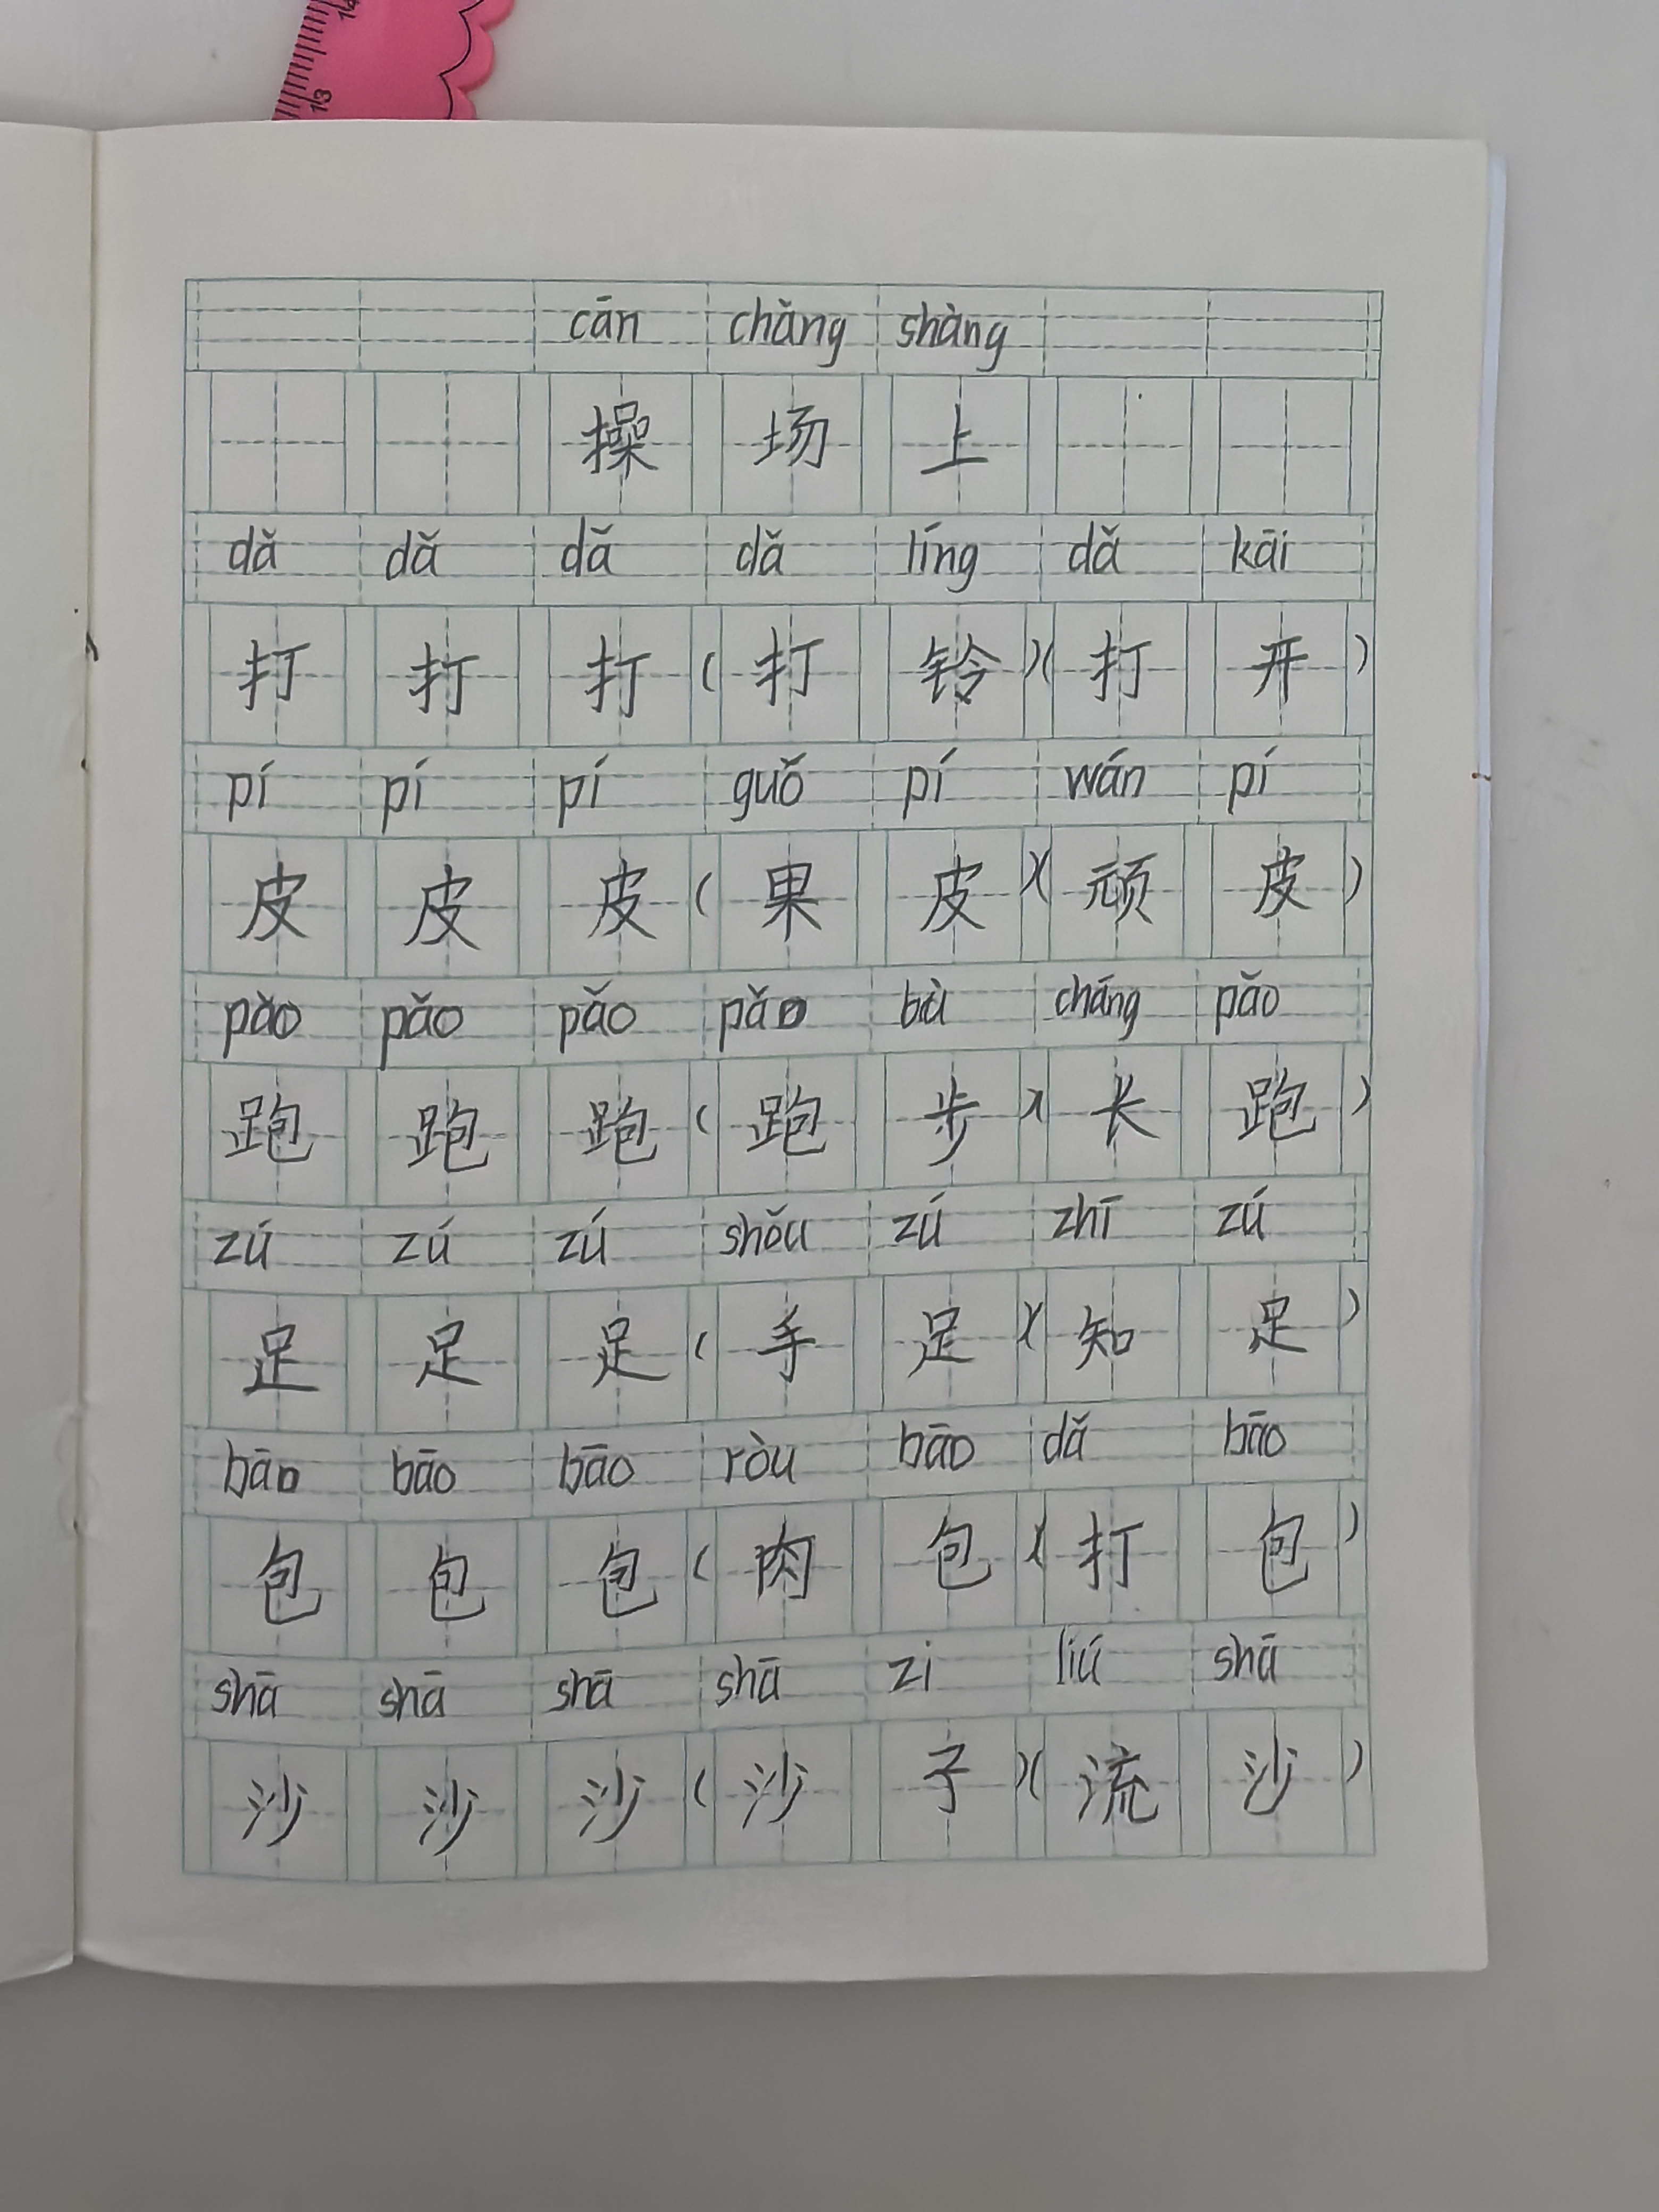 14
13
cān chǎng shàng
操 场 上
dǎ dǎ dǎ dǎ líng dǎ kāi
打 打 打 ( 打 铃 ) ( 打 开 )
pí pí pí guǒ pí wán pí
皮 皮 皮 ( 果 皮 ) ( 顽 皮 )
pǎo pǎo pǎo pǎo bù cháng pǎo
跑 跑 跑 ( 跑 步 ) ( 长 跑 )
zú zú zú shǒu zú zhī zú
足 足 足 ( 手 足 ) ( 知 足 )
bāo bāo bāo ròu bāo dǎ bāo
包 包 包 ( 肉 包 ) ( 打 包 )
shā shā shā shā zi liú shā
沙 沙 沙 ( 沙 子 ) ( 流 沙 )